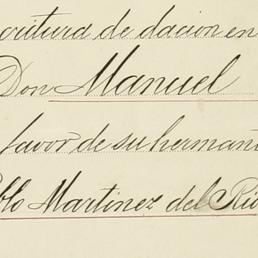 critura de dacion en
Don Manuel
favor de su herman
blo Martinez del Rio